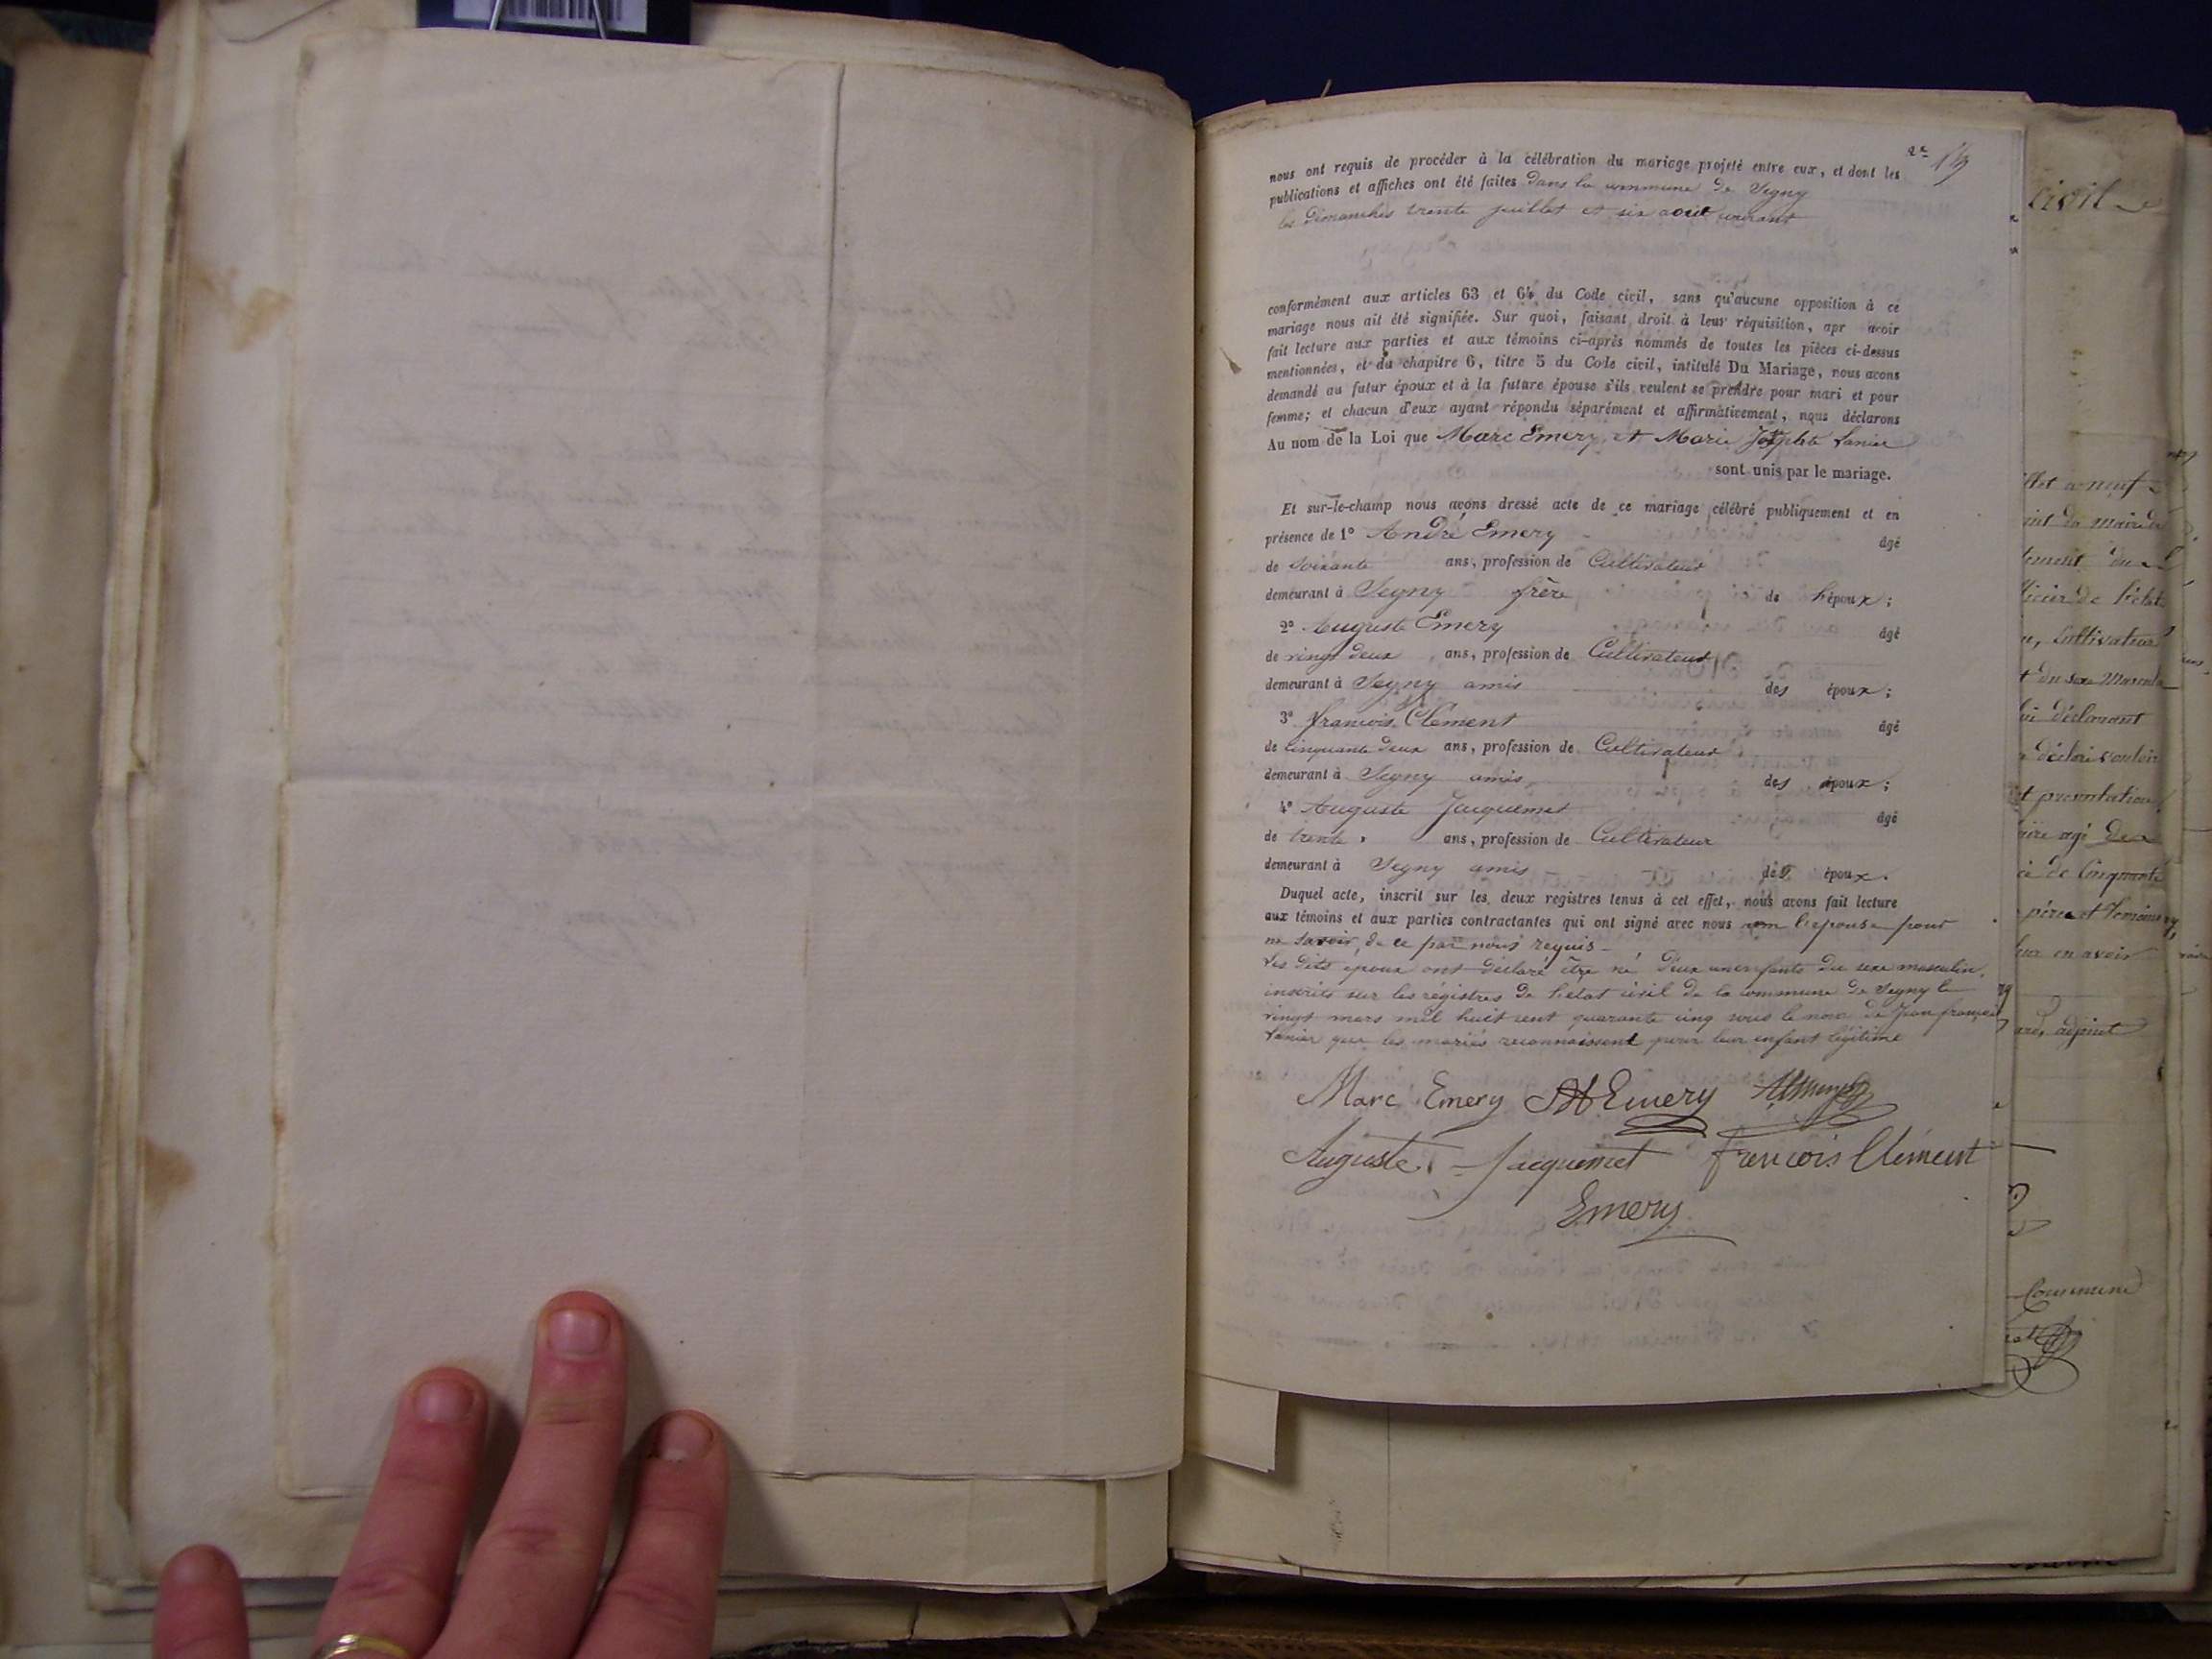 2e 19
nous ont requis de procéder à la célébration du mariage projeté entre eux, et dont les
publications et affiches ont été faites dans la commune de Segny
les dimanches trente juillet et six août courant
conformément aux articles 63 et 64 du Code civil, sans qu'aucune opposition à ce
mariage nous ait été signifiée. Sur quoi, faisant droit à leur réquisition, apr avoir
fait lecture aux parties et aux témoins ci-après nommés de toutes les pièces ci-dessus
mentionnées, et du chapitre 6, titre 5 du Code civil, intitulé Du Mariage, nous avons
demandé au futur époux et à la future épouse s'ils veulent se prendre pour mari et pour
femme; et chacun d'eux ayant répondu séparément et affirmativement, nous déclarons
Au nom de la Loi que Marc Emery et Marie Josephte Lanier
sont unis par le mariage.
Et sur-le-champ nous avons dressé acte de ce mariage célébré publiquement et en
présence de 1° André Emery âgé
de soixante ans, profession de Cultivateur
demeurant à Segny frère de l'époux;
2° Auguste Emery âgé
de vingt deux ans, profession de Cultivateur
demeurant à Segny amis des époux;
3° françois Clément âgé
de cinquante deux ans, profession de Cultivateur
demeurant à Segny amis des époux;
4° Auguste Jacquemet âgé
de trente ans, profession de Cultivateur
demeurant à Segny amis des époux.
Duquel acte, inscrit sur les deux registres tenus à cet effet, nous avons fait lecture
aux témoins et aux parties contractantes qui ont signé avec nous non l'epouse pour
ne savoir, de ce par nous requis
Les dits époux ont déclaré être né d'eux un enfants du sexe masculin,
inscrits sur les régistres de l'état civil de la commune de Segny le
vingt mars mil huit cent quarante cinq sous le nom de Jean françois
Lanier que les mariés reconnaissent pour leur enfant légitime
Marc Emery Emery
Auguste Jacquemet francois Clément
Emery
civil
a neuf
du maire de
l'état
Cultivateur
du sexe Mascul
déclarant
déclaré vouloir
présentation
agé de
de Cinquante
père et témoins
en avoir
adjoint
Commune